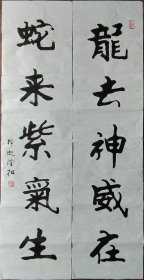 龍去神威在
蛇来紫氣生